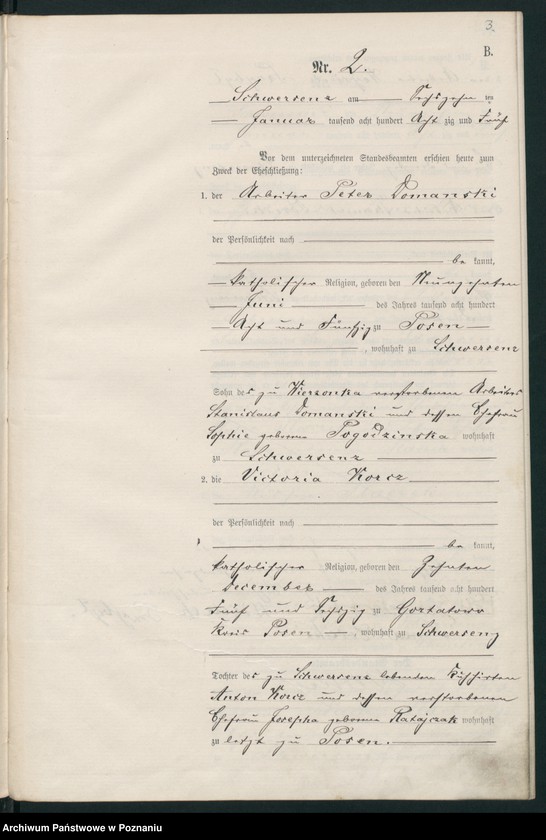 3.
B.
Nr. 2.
Schwersenz am Sechszehn ten
Januar tausend acht hundert Acht zig und Fünf
Vor dem unterzeichneten Standesbeamten erschien heute zum
Zweck der Eheschließung:
1. der Arbeiter Peter Domanski
der Persönlichkeit nach
be kannt,
katholischer Religion, geboren den Neunzehnten
Juni des Jahres tausend acht hundert
Acht und Fünfzig zu Posen
, wohnhaft zu Schwersenz
Sohn des zu Wierzonka verstorbenen Arbeiters
Stanislaus Domanski und dessen Ehefrau
Sophie geborene Pogodzinska wohnhaft
zu Schwersenz
2. die Victoria Korcz
der Persönlichkeit nach
be kannt,
katholischer Religion, geboren den Zehnten
December des Jahres tausend acht hundert
Fünf und Sechszig zu Gortatowo
Kreis Posen , wohnhaft zu Schwersenz
Tochter des zu Schwersenz lebenden Kuhhirten
Anton Korcz und dessen verstorbenen
Ehefrau Josepha geborene Ratajczak wohnhaft
zu letzt zu Posen.
Archiwum Państwowe w Poznaniu